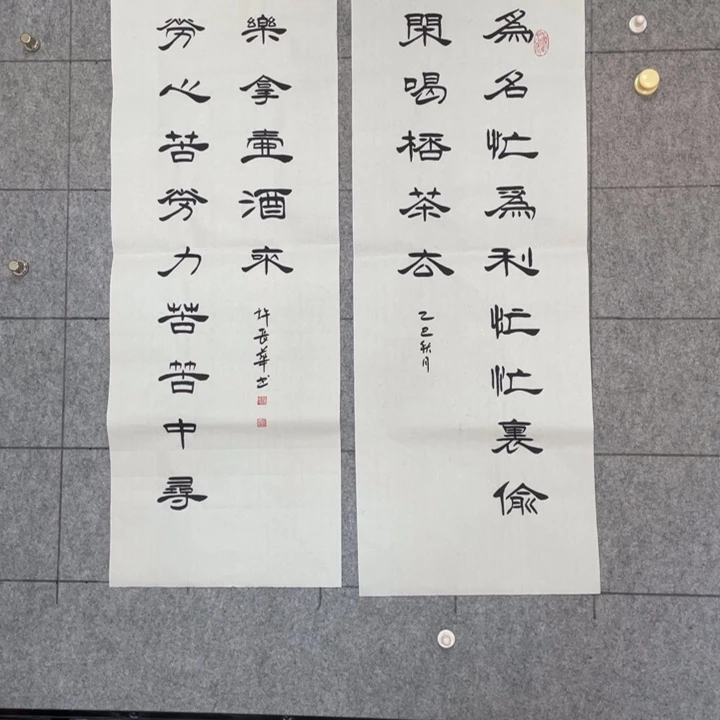 爲名忙爲利忙忙裏偷
閑喝桮茶去
乙巳秋月
勞心苦勞力苦苦中尋
樂拿壺酒來
許長華书